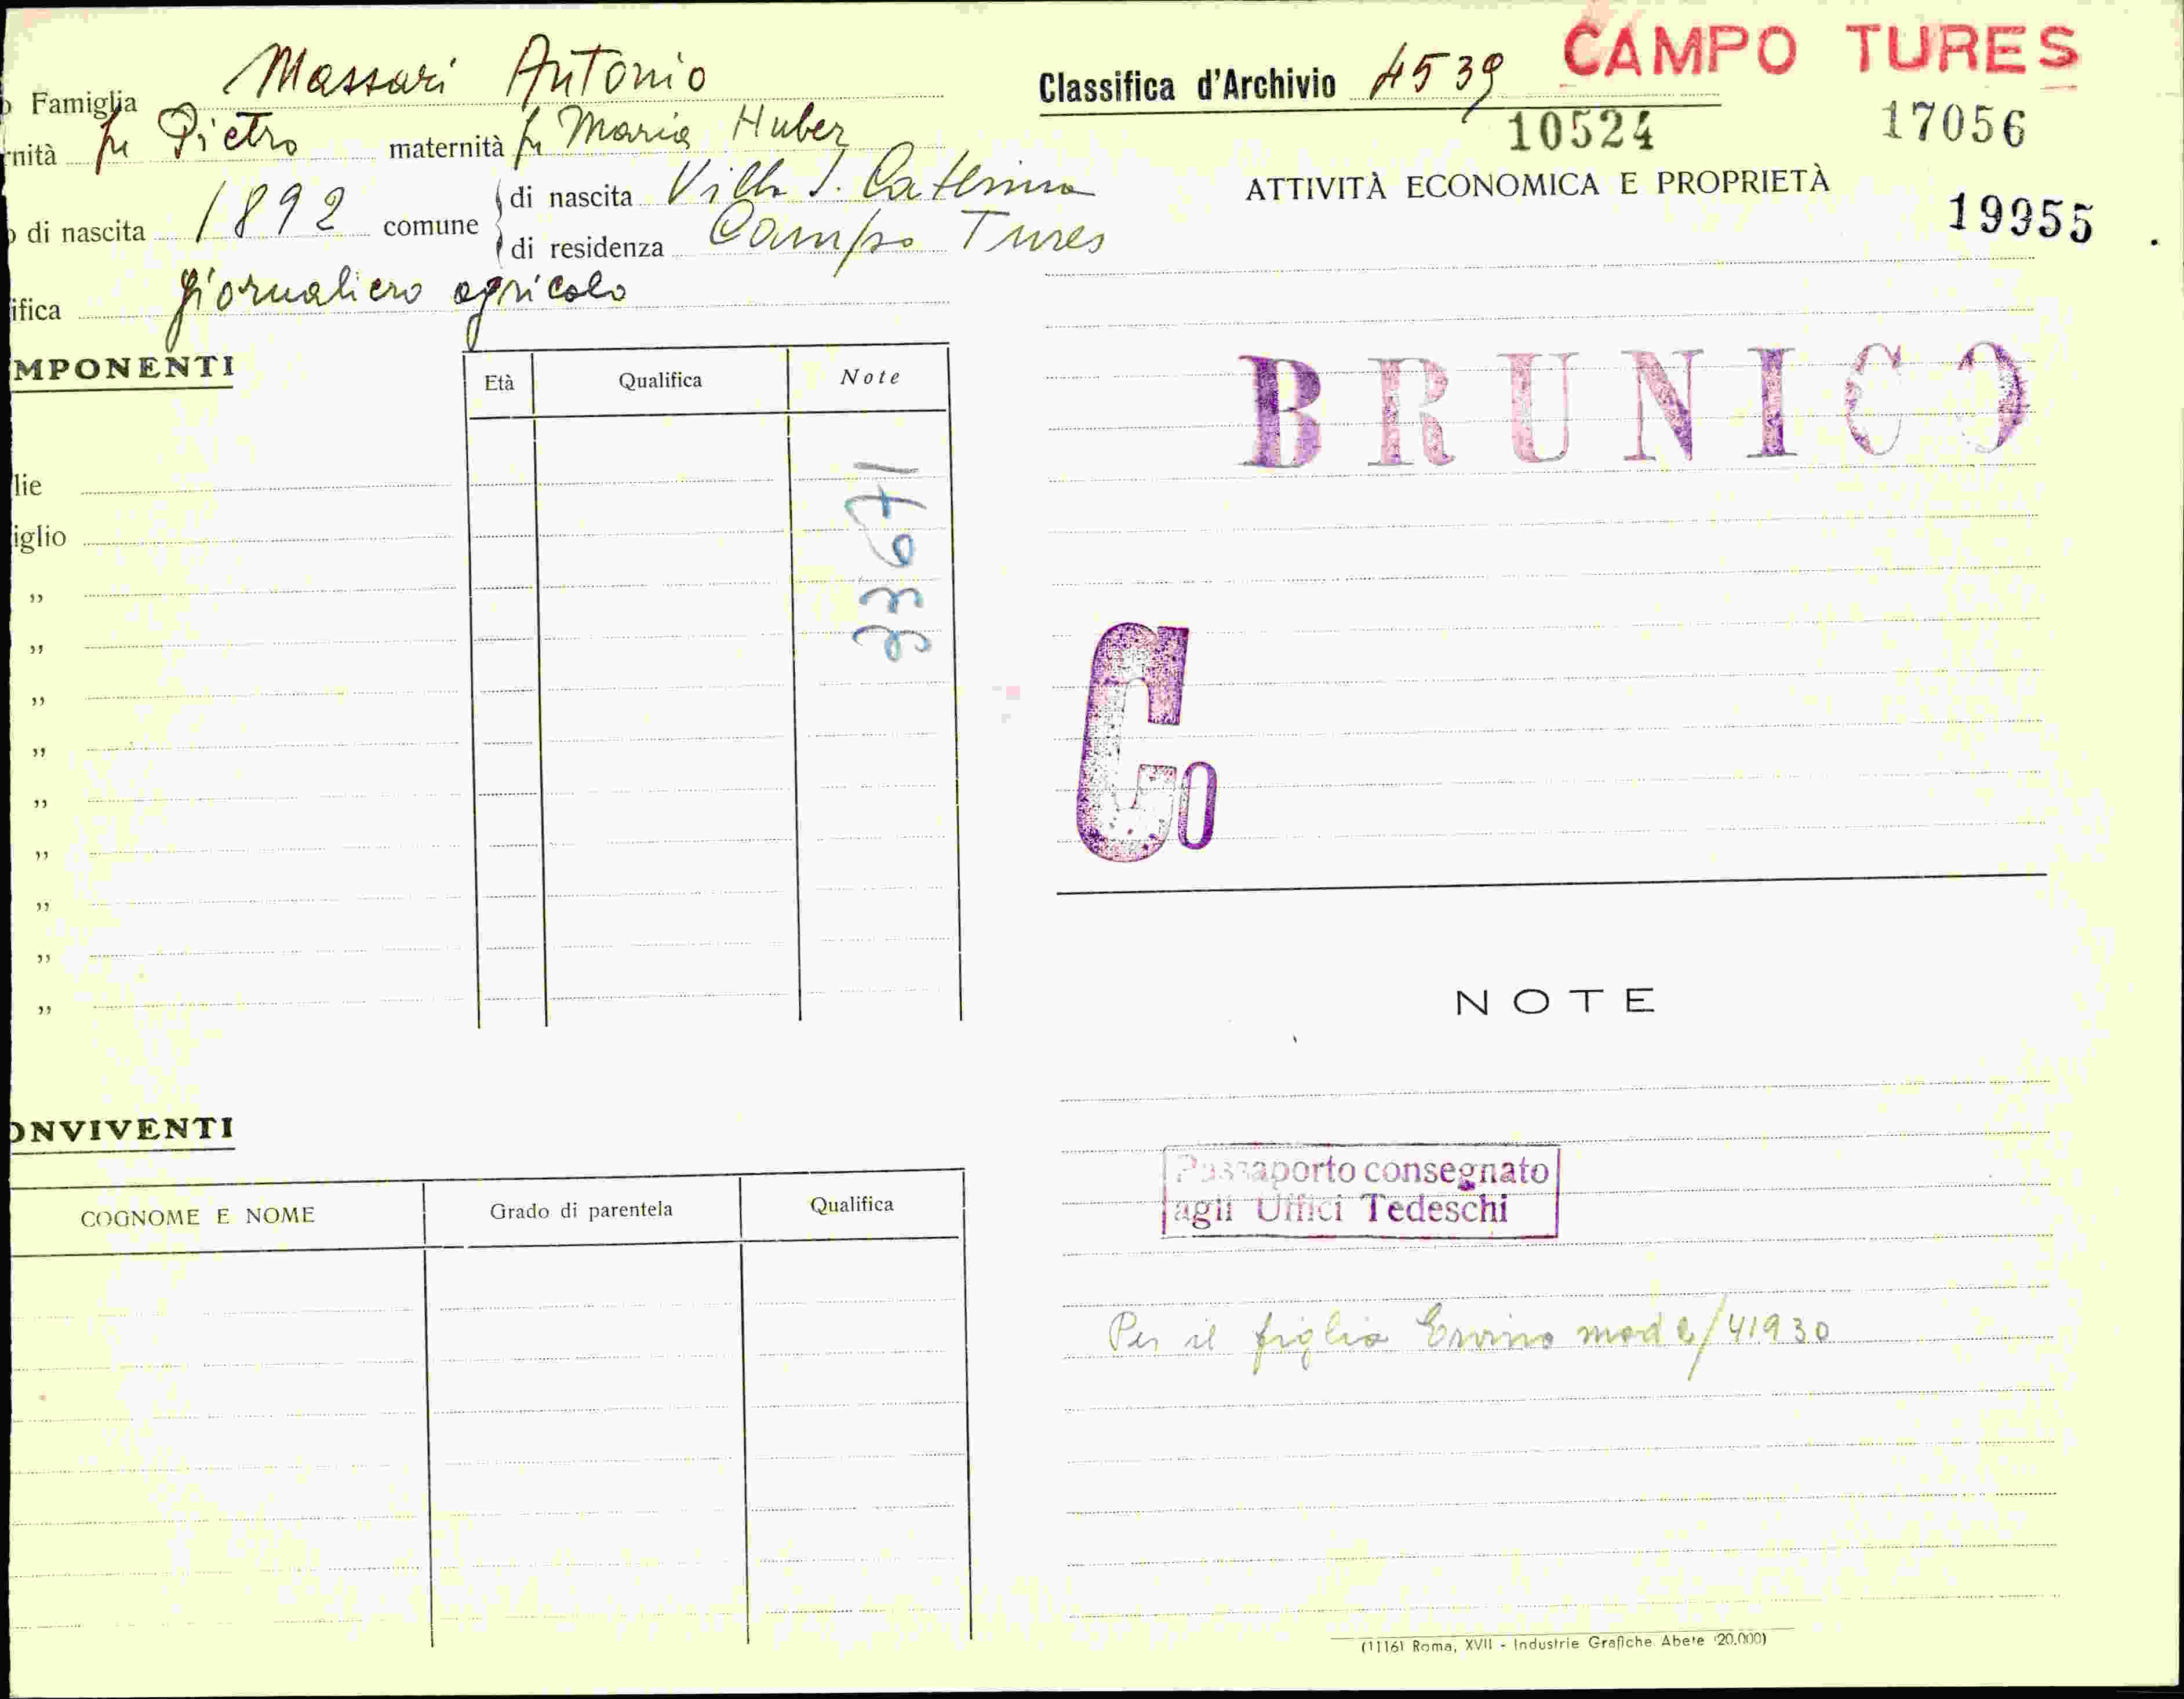 Famiglia Massari Antonio
nità fu Pietro maternità fu Maria Huber
di nascita 1892 comune di nascita Villa S. Caterina
di residenza Campo Tures
ifica giornaliero agricolo
MPONENTI
Età Qualifica Note
lie
iglio
"
"
"
"
"
"
"
"
"
33671
ONVIVENTI
COGNOME E NOME Grado di parentela Qualifica
Classifica d'Archivio 4539 CAMPO TURES
10524 17056
ATTIVITÀ ECONOMICA E PROPRIETÀ
19955
BRUNICO
Go
NOTE
Passaporto consegnato
agli Uffici Tedeschi
Per il figlio Ervino mod 2/41930
(1116) Roma, XVII - Industrie Grafiche Abete (20.000)